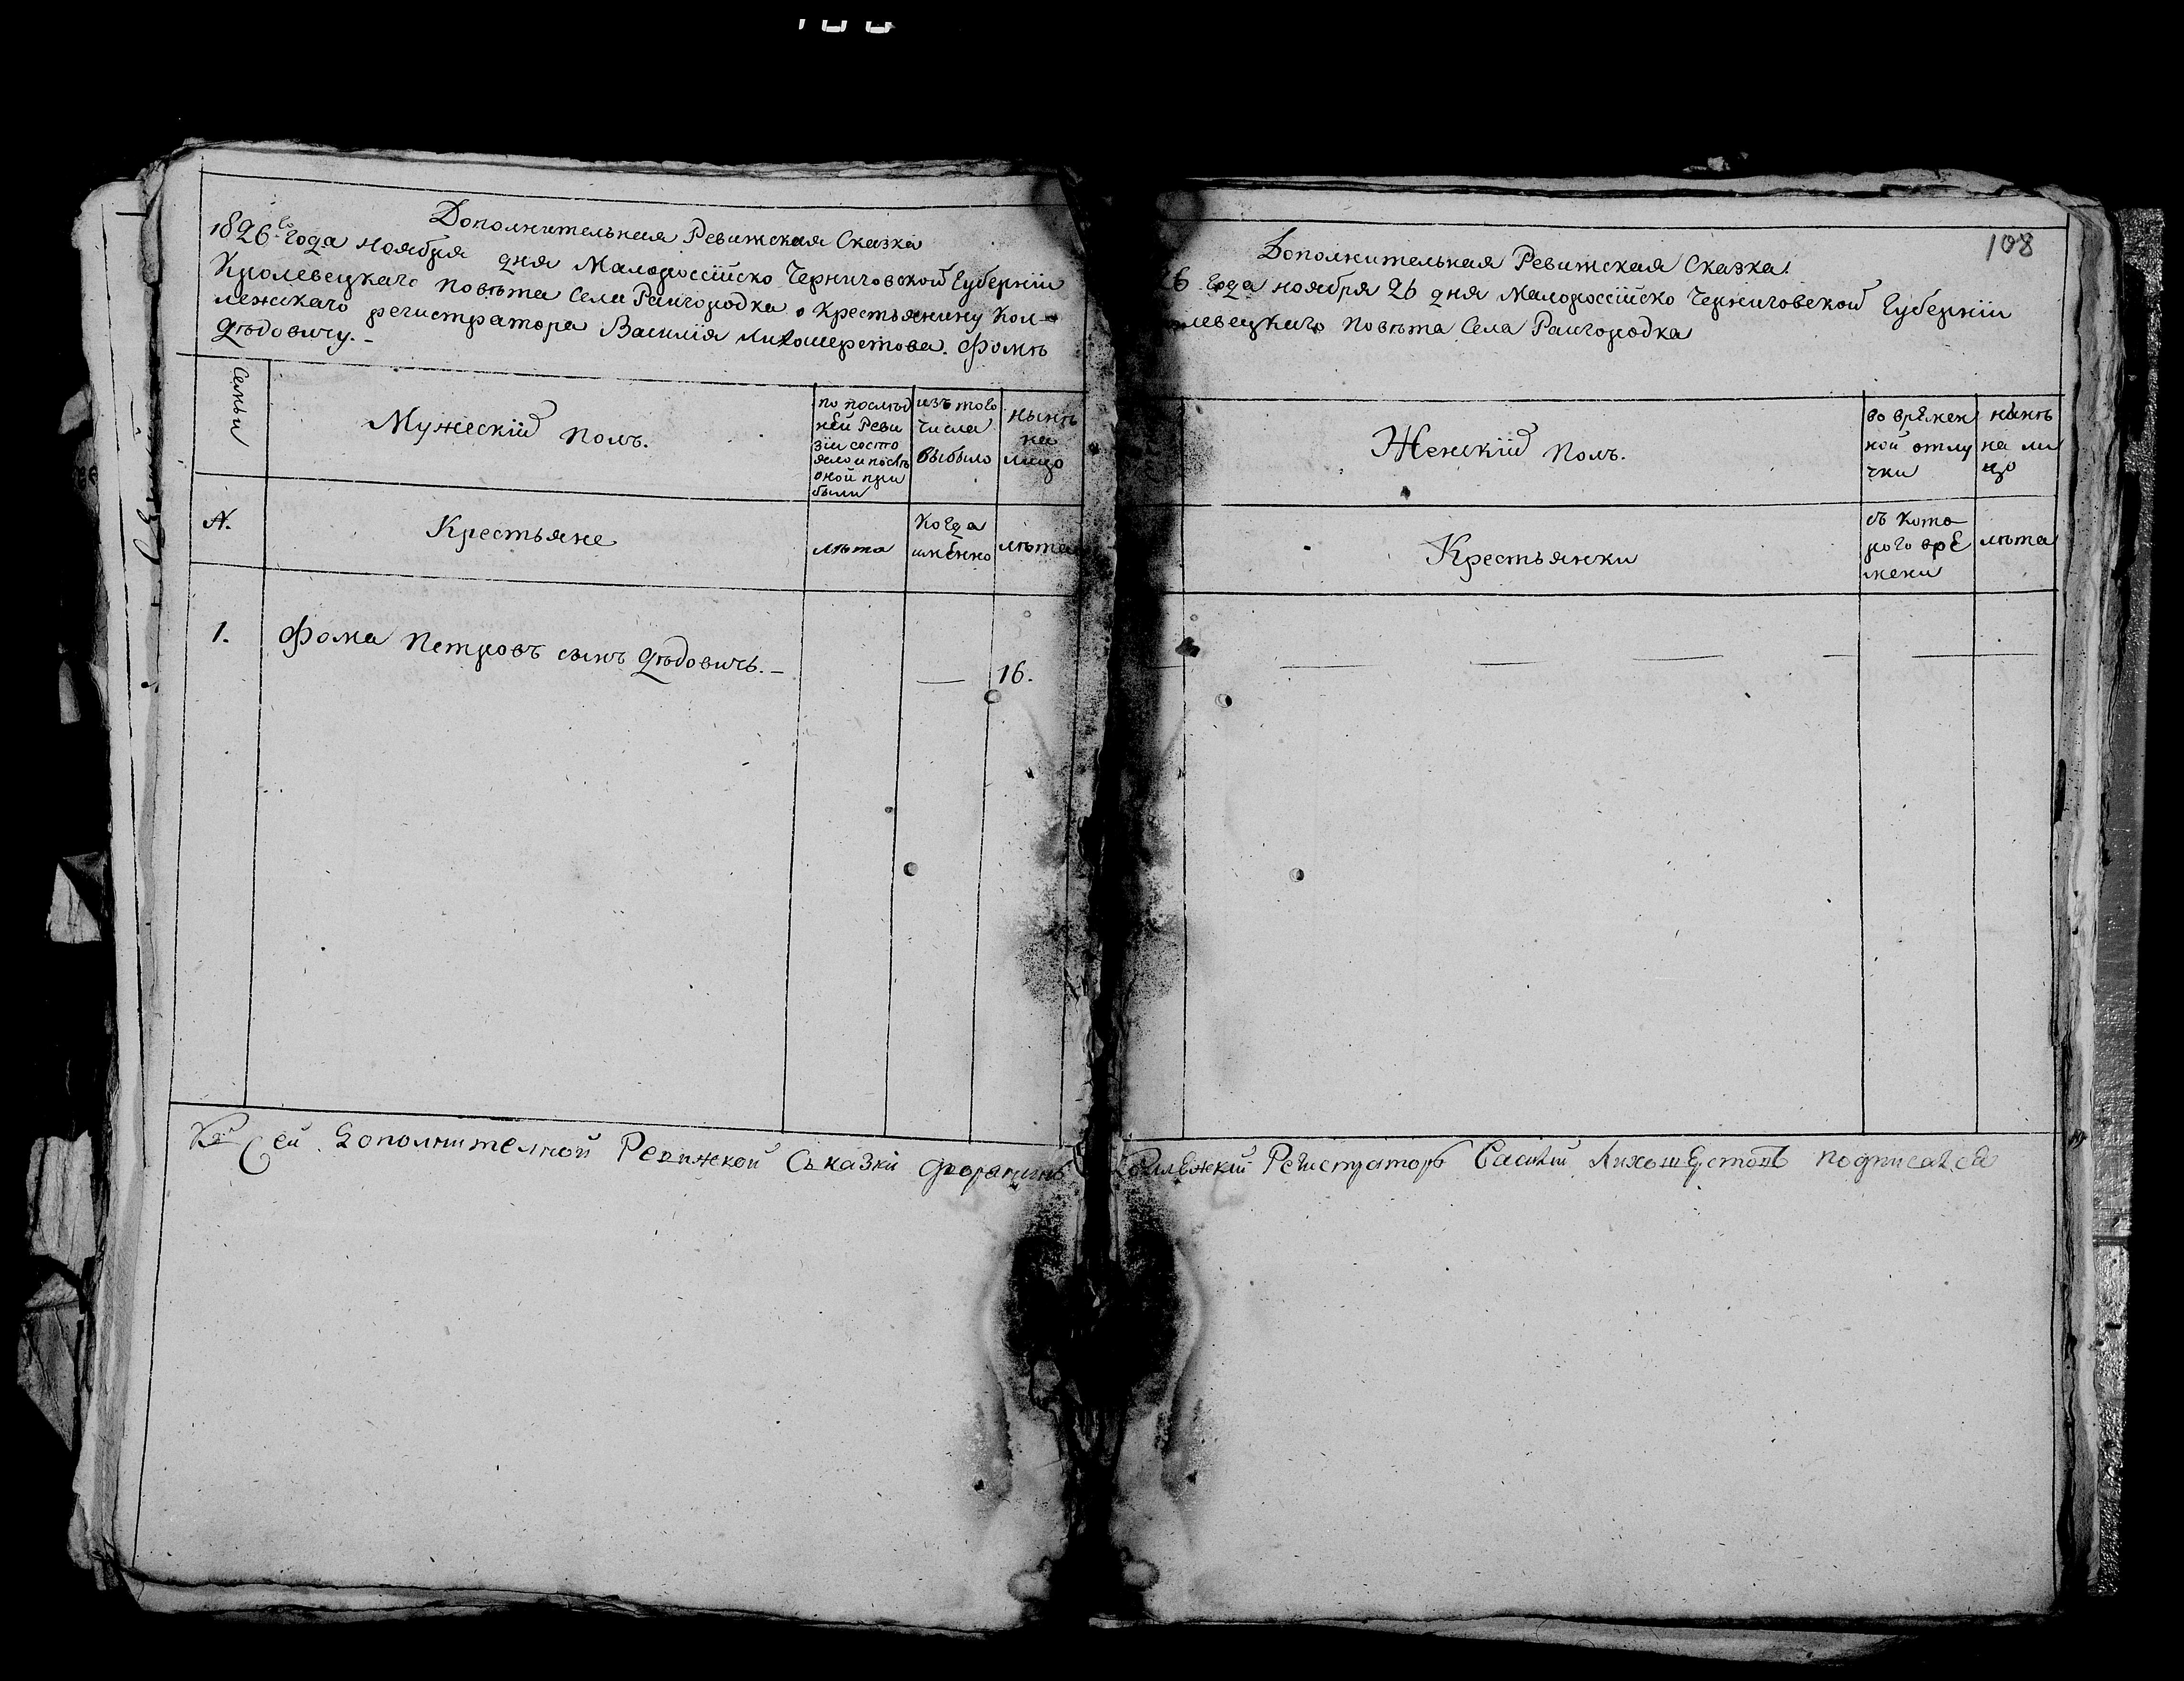 Дополнительная Ревижская Сказка
1826го года ноября дня Малороссійско Черниговской Губерніи
Кролевецкаго повѣта Села Райгородка о крестьянину Кол-
лежскаго регистратора Василія Лихошерстова. Фомѣ
Дѣдовичу.-
Семьи
Мужескій полъ.
по послѣд
ней Реви
зіи состо
яло и послѣ
оной при
были
изъ того
числа
выбыло
нынѣ
на
лицо
№.
Крестьяне
лѣта
Когда
именно
лѣта
1. Фома Петровъ сынъ Дѣдовичъ.- — 16.
Къ сей Дополнителной Ревижской Съказки дворанинъ
108
Дополнительная Ревижская Сказка.
26 года ноября 26 дня Малороссійско Черниговской Губерніи
левецкаго повѣта Села Райгородка
Женскій полъ.
во времен
ной отлу
чки
нынѣ
на ли
цо
Крестьянки
съ кото
рого вре
мени
лѣта
Регистраторъ Василій Лихошерстовъ подписался